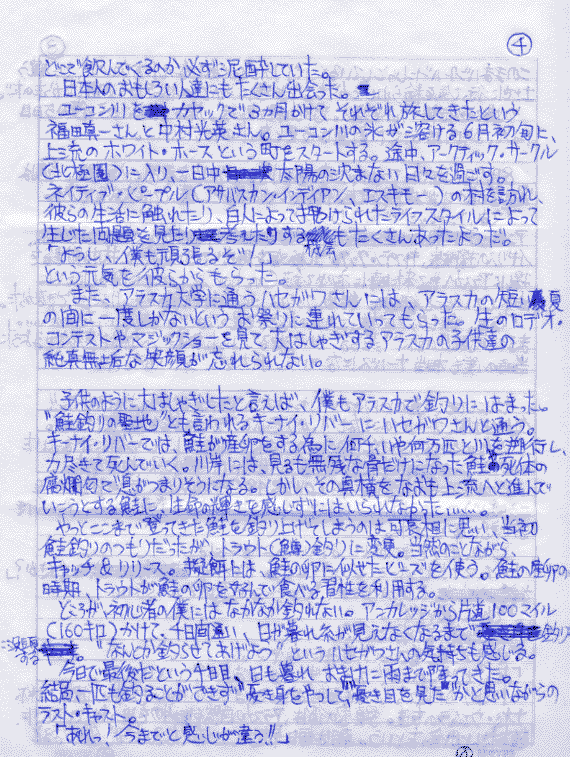 ④
どこで飲んでくるのか必ず泥酔していた。
日本人のおもしろい人達にもたくさん出会った。
ユーコン川をカヤックで3ヵ月かけてそれぞれ旅してきたという
福田真一さんと中村光英さん。ユーコン川の氷が溶ける6月初旬に、
上流のホワイト・ホースという町をスタートする。途中、アークティック・サークル
(北極圏)に入り、一日中太陽の沈まない日々を過ごす。
ネイティブ・ピープル(アサバスカン・インディアン、エスキモー)の村を訪れ、
彼らの生活に触れたり、白人によって押つけられたライフスタイルによって
生じた問題を見たり考えたりする機会もたくさんあったようだ。
「ようし、僕も頑張るぞ!」
という元気を彼らからもらった。
また、アラスカ大学に通うハセガワさんには、アラスカの短い夏
の間に一度しかないというお祭りに連れていってもらった。生のロデオ・
コンテストやマジックショーを見て、大はしゃぎするアラスカの子供達の
純真無垢な笑顔が忘れられない。
子供のように大はしゃぎしたと言えば、僕もアラスカで釣りにはまった。
"鮭釣りの聖地"とも言われるキーナイ・リバーにハセガワさんと通う。
キーナイ・リバーでは、鮭が産卵をする為に何千いや何万匹と川を逆行し、
力尽きて死んでいく。川岸には、見るも無残な骨だけになった鮭の死体の
腐爛臭で息がつまりそうになる。しかし、その真横をなおも上流へと進んで
いこうとする鮭に、生命の輝きを感じずにはいられなかった……。
やっとここまで登ってきた鮭を釣り上げてしまうのは可哀相に思い、当初
鮭釣りのつもりだったが、トラウト(鱒)釣りに変更。当然のことながら、
キャッチ&リリース。擬餌は、鮭の卵に似せたビーズを使う。鮭の産卵の
時期、トラウトが鮭の卵を好んで食べる習性を利用する。
ところが初心者の僕にはなかなか釣れない。アンカレッジから片道100マイル
(160キロ)かけて、4日間通い、日が暮れ糸が見えなくなるまで釣りに没頭
する。"なんとか釣らせてあげよう"というハセガワさんの気持ちも感じる。
今日で最後だという4日目、日も暮れ、おまけに雨まで降ってきた。
結局一匹も釣ることができず"憂き身をやつして、憂き目を見た"かと思いながらの
ラスト・キャスト。
「あれっ!今までと感じが違う!!」